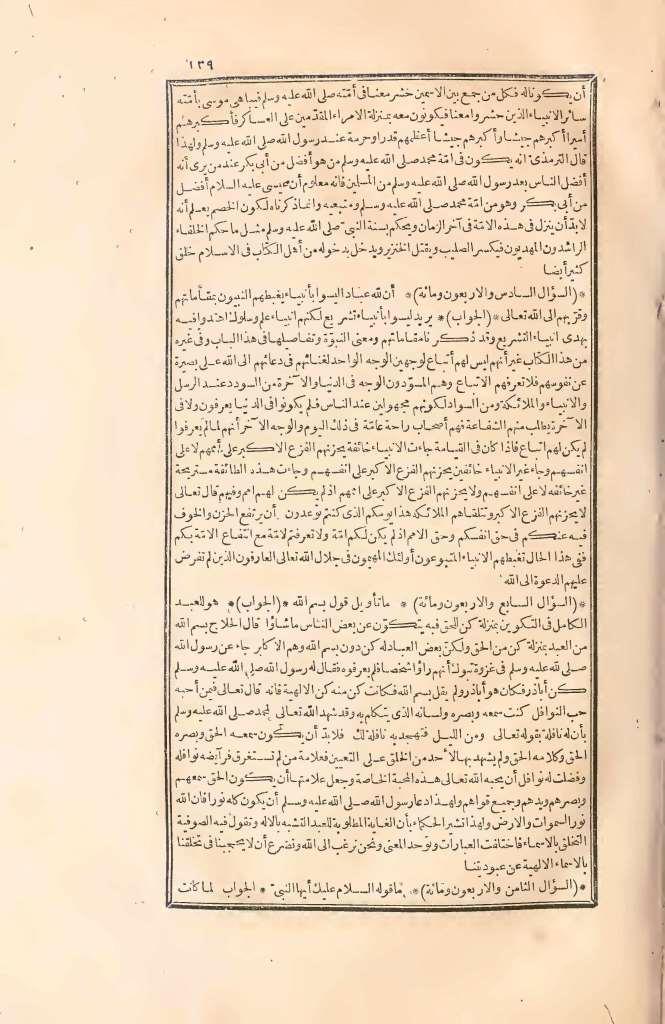 ١٣٩
أن يكون له فكل من جمع بين الاسمين حشر معنا فى أمته صلى الله عليه وسلم فيباهى موسى بأمته
سائر الانبياء الذين حشروا معنا فيكونون معه بمنزلة الامراء المقدمين على العساكر فأكبرهم
أميرا أكبرهم جيشا وأكبرهم جيشا أعظمهم قدرا وحرمة عند رسول الله صلى الله عليه وسلم ولهذا
قال الترمذى انه يكون فى امة محمد صلى الله عليه وسلم من هو أفضل من أبى بكر عند من يرى أنه
أفضل الناس بعد رسول الله صلى الله عليه وسلم من المسلمين فانه معلوم أن عيسى عليه السلام أفضل
من أبى بكر وهو من امة محمد صلى الله عليه وسلم ومتبعيه وانما ذكرناه لكون الخصم يعلم أنه
لابد أن ينزل فى هذه الامة فى آخر الزمان ويحكم بسنة النبى صلى الله عليه وسلم مثل ما حكم الخلفاء
الراشدون المهديون فيكسر الصليب ويقتل الخنزير ويدخل بدخوله من أهل الكتاب فى الاسلام خلق
كثير أيضا
*(السؤال السادس والاربعون ومائة)* أن لله عبادا ليسوا بأنبياء يغبطهم النبيون بمقاماتهم
وقربهم الى الله تعالى *(الجواب)* يريد ليسوا بأنبياء تشريع لكنهم انبياء علم وسلوك اهتدوا فيه
بهدى أنبياء التشريع وقد ذكرنا مقاماتهم ومعنى النبوة وتفاصيلها فى هذا الباب وفى غيره
من هذا الكتاب غير أنهم ليس لهم أتباع لوجهين الوجه الواحد لغنائهم فى دعائهم الى الله على بصيرة
عن نفوسهم فلا تعرفهم الاتباع وهم المسودون الوجه فى الدنيا والآخرة من السودد عند الرسل
والانبياء والملائكة ومن السواد لكونهم مجهولين عند الناس فلم يكونوا فى الدنيا يعرفون ولا فى
الآخرة يطلب منهم الشفاعة فهم أصحاب راحة عامة فى ذلك اليوم والوجه الآخر أنهم لما لم يعرفوا
لم يكن لهم اتباع فاذا كان فى القيامة جاءت الانبياء خائفة يحزنهم الفزع الاكبر على أممهم لا على
انفسهم وجاء غير الانبياء خائفين يحزنهم الفزع الاكبر على انفسهم وجاءت هذه الطائفة مستريحة
غير خائفة لا على أنفسهم ولا يحزنهم الفزع الاكبر على اممهم اذ لم يكن لهم امم وفيهم قال تعالى
لا يحزنهم الفزع الاكبر وتتلقاهم الملائكة هذا يومكم الذى كنتم توعدون أن يرتفع الحزن والخوف
فيه عنكم فى حق انفسكم وحق الامم اذ لم يكن لكم امة ولا تعرفتم لامة مع انتفاع الامة بكم
ففى هذا الحال تغبطهم الانبياء المتبوعون أولئك المهيمون فى جلال الله تعالى العارفون الذين لم تفرض
عليهم الدعوة الى الله
*(السؤال السابع والاربعون ومائة)* ما تأويل قول بسم الله *(الجواب)* هو للعبد
الكامل فى التكوين بمنزلة كن للحق فبه يتكون عن بعض الناس ما شاؤا قال الحلاج بسم الله
من العبد بمنزلة كن من الحق ولكن بعض العباد له كن دون بسم الله وهم الاكابر جاء عن رسول الله
صلى لله عليه وسلم فى غزوة تبوك أنهم رأوا شخصا فلم يعرفوه فقال له رسول الله صلى الله عليه وسلم
كن أباذر فكان هو أباذر ولم يقل بسم الله فكانت كن منه كن الالهية فانه قال تعالى فيمن أحبه
حب النوافل كنت سمعه وبصره ولسانه الذى يتكلم به وقد شهد الله تعالى لمحمد صلى الله عليه وسلم
بأن له نافلة بقوله تعالى ومن الليل فتهجد به نافلة لك فلابد أن يكون سمعه الحق وبصره
الحق وكلامه الحق ولم يشهد بها لأحد من الخلق على التعيين فعلامة من لم تستغرق فرائضه نوافله
وفضلت له نوافل أن يحبه الله تعالى هذه المحبة الخاصة وجعل علامتها أن يكون الحق سمعهم
وبصرهم ويدهم وجميع قواهم ولهذا دعا رسول الله صلى الله عليه وسلم أن يكون كله نورا فان الله
نور السموات والارض ولهذا تشير الحكماء بأن الغاية المطلوبة للعبد التشبه بالاله وتقول فيه الصوفية
التخلق بالاسماء فاختلفت العبارات وتوحد المعنى ونحن نرغب الى الله ونضرع أن لا يحجبنا فى تخلقنا
بالاسماء الالهية عن عبوديتنا
*(السؤال الثامن والاربعون ومائة)* ما قوله السلام عليك أيها النبى * الجواب لما كانت